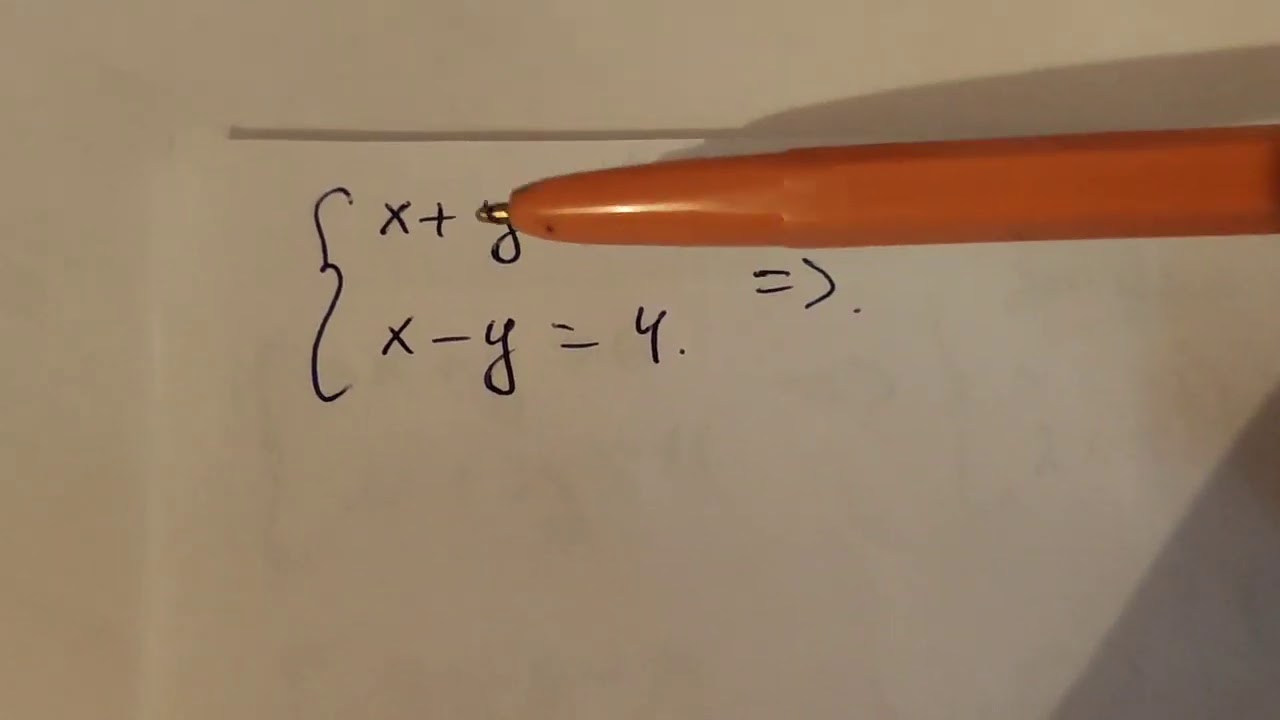 x + y
x - y = 4.
=> .